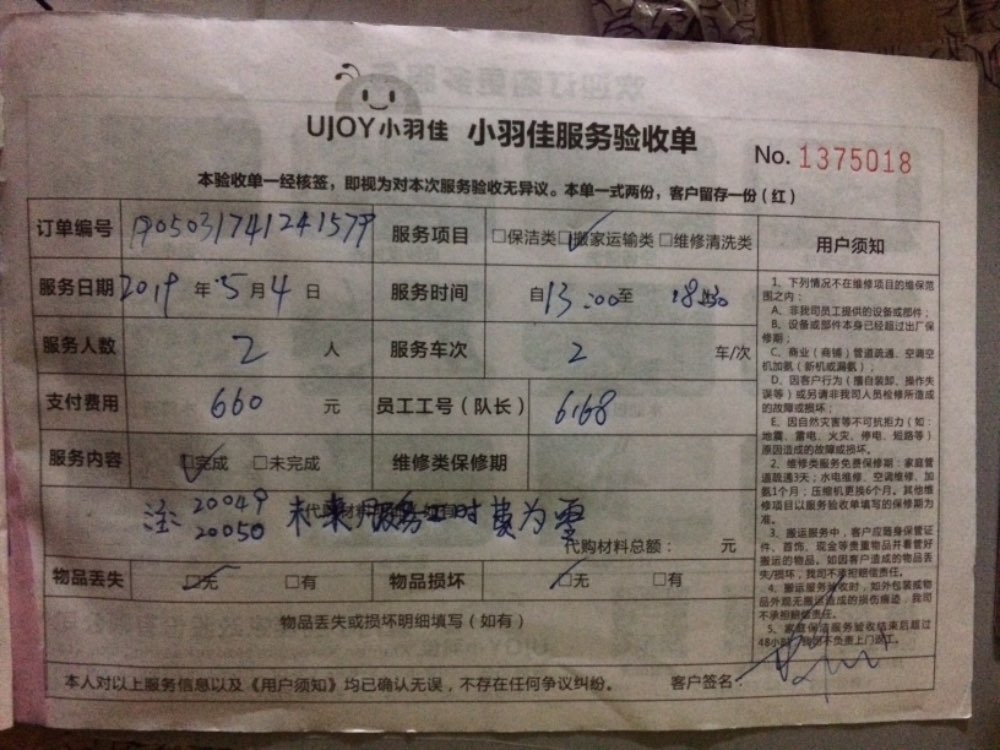 UJOY小羽佳 小羽佳服务验收单
No. 1375018
本验收单一经核签，即视为对本次服务验收无异议。本单一式两份，客户留存一份（红）
订单编号 服务项目 □保洁类 □搬家运输类 □维修清洗类 用户须知
服务日期 2019 年 5 月 4 日 服务时间 自 13:00 至 18:30
服务人数 2 人 服务车次 2 车/次
支付费用 660 元 员工工号（队长） 6168
服务内容 □完成 □未完成 维修类保修期
注: 20049
20050
代购材料总额： 元
物品丢失 □无 □有 物品损坏 □无 □有
物品丢失或损坏明细填写（如有）
本人对以上服务信息以及《用户须知》均已确认无误，不存在任何争议纠纷。 客户签名：
1、下列情况不在维修项目的维保范
围之内：
A、非我司员工提供的设备或部件；
B、设备或部件本身已经超过出厂保
修期；
C、商业（商铺）管道疏通、空调空
机加氨（新机或漏氨）；
D、因客户行为（擅自装卸、操作失
误等）或另请非我司人员检修所造成
的故障或损坏；
E、因自然灾害等不可抗拒力（如：
地震、雷电、火灾、停电、短路等）
原因造成的故障或损坏。
2、维修类服务免费保修期：家庭管
道疏通3天；水电维修、空调维修、加
氨1个月；压缩机更换6个月。其他维
修项目以服务验收单填写的保修期为
准。
3、搬运服务中，客户应随身保管证
件、首饰、现金等贵重物品并看管好
搬运的物品。如因客户造成的物品丢
失/损坏，我司不承担赔偿责任。
4、搬运服务验收时，如外包装或物
品外观无搬运造成的损伤痕迹，我司
不承担赔偿责任。
5、家庭保洁服务验收结束后超过
48小时，我司不负责上门返工。